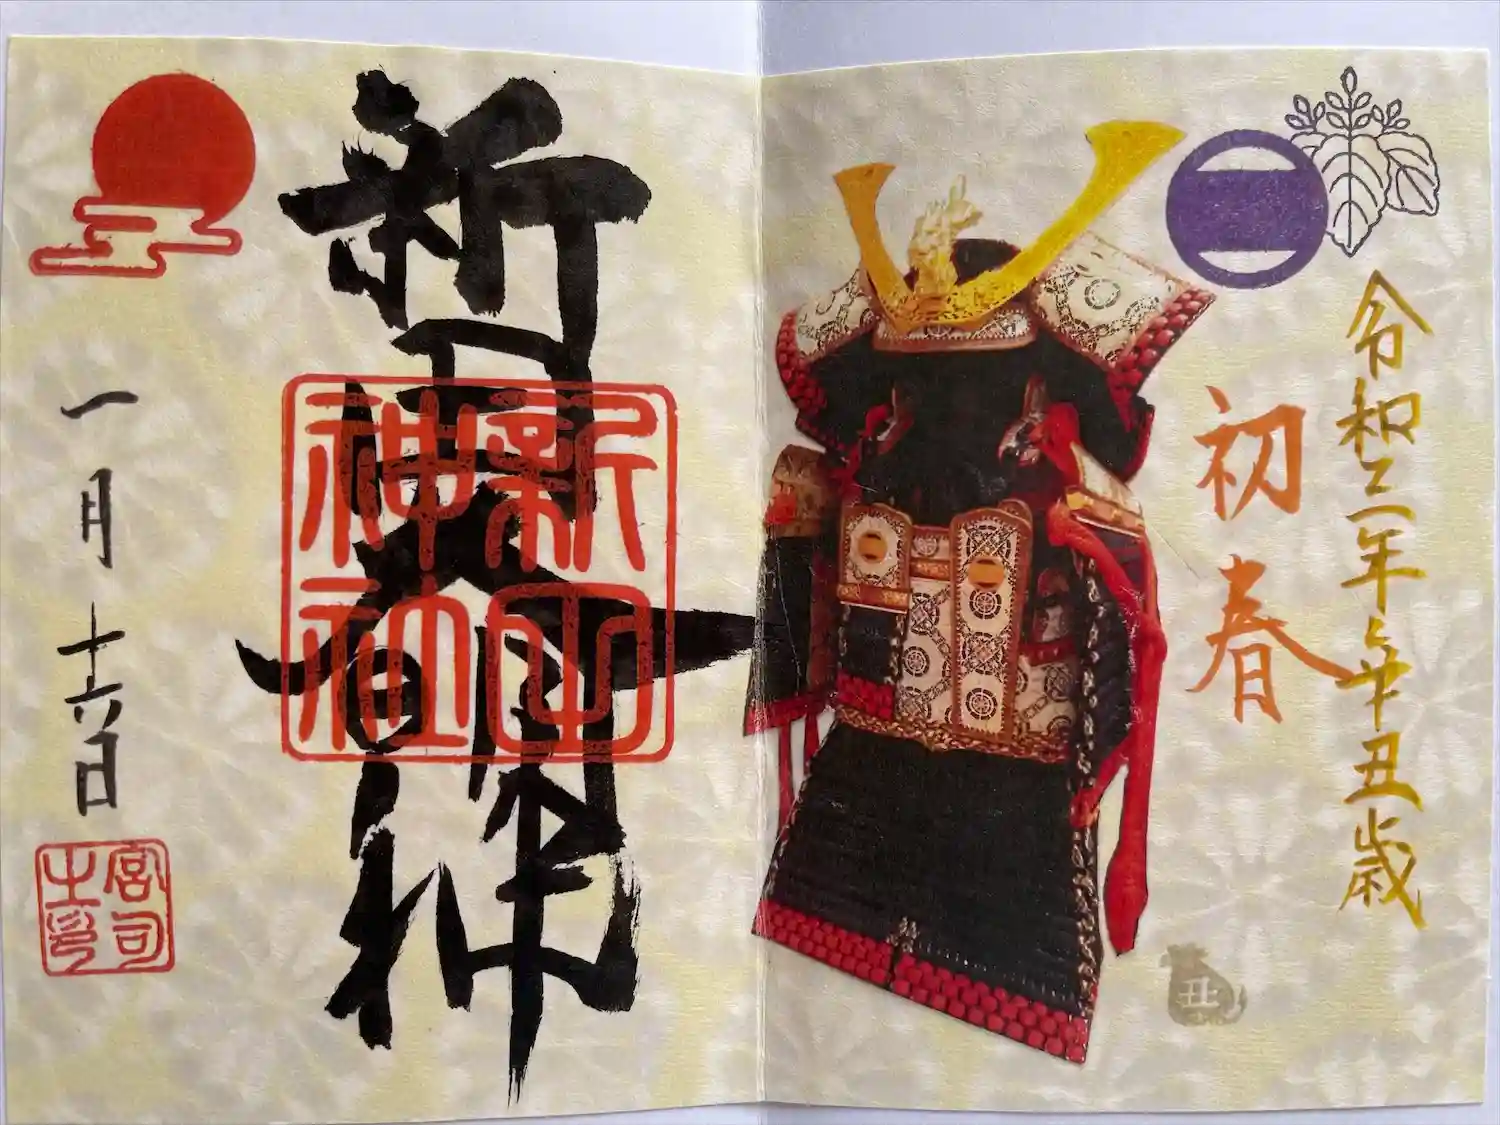 令和三年辛丑歳
初春
丑
新田大明神
新田神社
一月
日
宮司之印